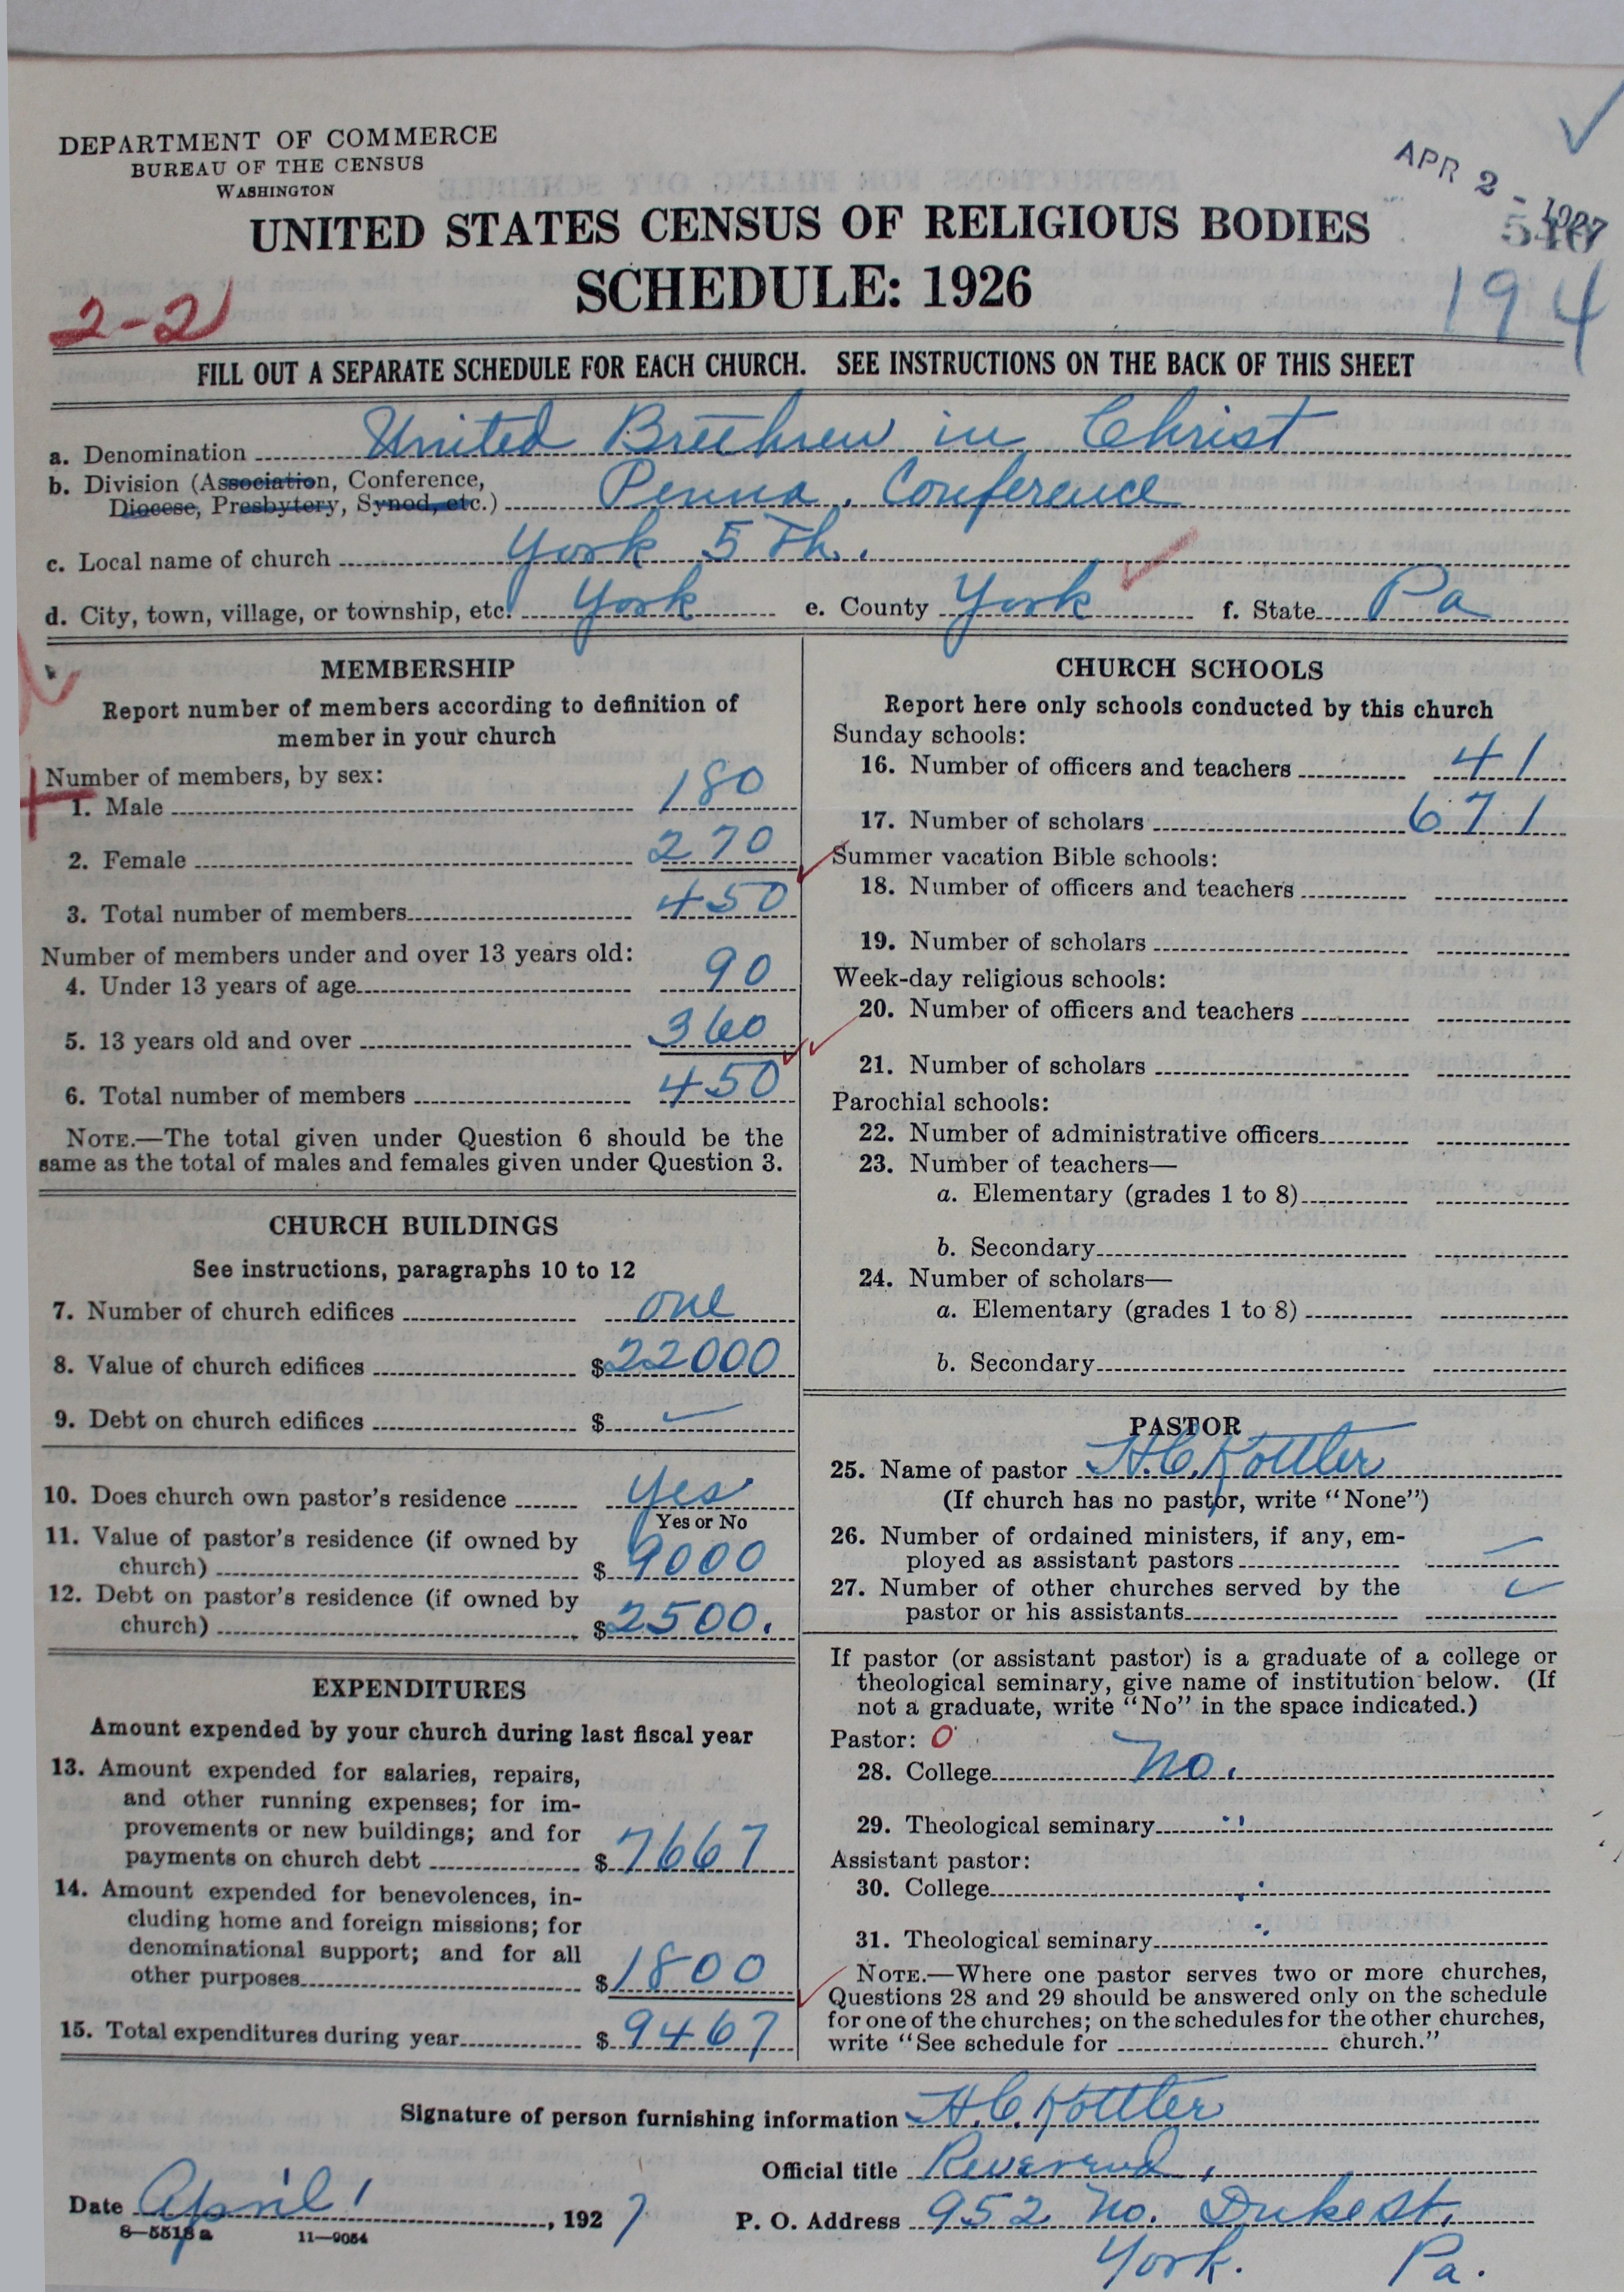 DEPARTMENT OF COMMERCE
BUREAU OF THE CENSUS
WASHINGTON
APR 2 - 1927
UNITED STATES CENSUS OF RELIGIOUS BODIES
SCHEDULE: 1926
2-21
194
FILL OUT A SEPARATE SCHEDULE FOR EACH CHURCH. SEE INSTRUCTIONS ON THE BACK OF THIS SHEET
a. Denomination United Brethren in Christ
b. Division (Association, Conference,
Diocese, Presbytery, Synod, etc.) Penna. Conference
c. Local name of church York 5 Th.
d. City, town, village, or township, etc. York e. County York f. State Pa
MEMBERSHIP
Report number of members according to definition of
member in your church
Number of members, by sex:
1. Male 180
2. Female 270
3. Total number of members 450
Number of members under and over 13 years old:
4. Under 13 years of age 90
5. 13 years old and over 360
6. Total number of members 450
NOTE.—The total given under Question 6 should be the
same as the total of males and females given under Question 3.
CHURCH BUILDINGS
See instructions, paragraphs 10 to 12
7. Number of church edifices one
8. Value of church edifices $22000
9. Debt on church edifices $ —
10. Does church own pastor's residence Yes
Yes or No
11. Value of pastor's residence (if owned by
church) $ 9000
12. Debt on pastor's residence (if owned by
church) $2500.
EXPENDITURES
Amount expended by your church during last fiscal year
13. Amount expended for salaries, repairs,
and other running expenses; for im-
provements or new buildings; and for
payments on church debt $ 7667
14. Amount expended for benevolences, in-
cluding home and foreign missions; for
denominational support; and for all
other purposes $ 1800
15. Total expenditures during year $ 9467
CHURCH SCHOOLS
Report here only schools conducted by this church
Sunday schools:
16. Number of officers and teachers 41
17. Number of scholars 671
Summer vacation Bible schools:
18. Number of officers and teachers
19. Number of scholars
Week-day religious schools:
20. Number of officers and teachers
21. Number of scholars
Parochial schools:
22. Number of administrative officers
23. Number of teachers—
a. Elementary (grades 1 to 8)
b. Secondary
24. Number of scholars—
a. Elementary (grades 1 to 8)
b. Secondary
PASTOR
25. Name of pastor H.C. Kottler
(If church has no pastor, write "None")
26. Number of ordained ministers, if any, em-
ployed as assistant pastors —
27. Number of other churches served by the
pastor or his assistants —
If pastor (or assistant pastor) is a graduate of a college or
theological seminary, give name of institution below. (If
not a graduate, write "No" in the space indicated.)
Pastor: 0
28. College No.
29. Theological seminary "
Assistant pastor:
30. College
31. Theological seminary
NOTE.—Where one pastor serves two or more churches,
Questions 28 and 29 should be answered only on the schedule
for one of the churches; on the schedules for the other churches,
write "See schedule for church."
Signature of person furnishing information H.C. Kottler
Official title Reverend,
Date April 1, 1927 P. O. Address 952 No. Duke St.
8—5518a 11—9054
York. Pa.